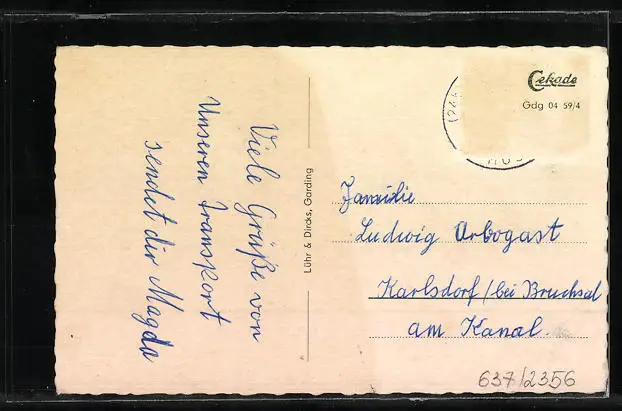 Viele Grüße von
Unseren Transport
sendet dir Magda
Lühr & Dircks, Garding
Cekade
Gdg 04 59/4
Familie
Ludwig Arbogast
Karlsdorf/bei Bruchsal
am Kanal.
637/2356